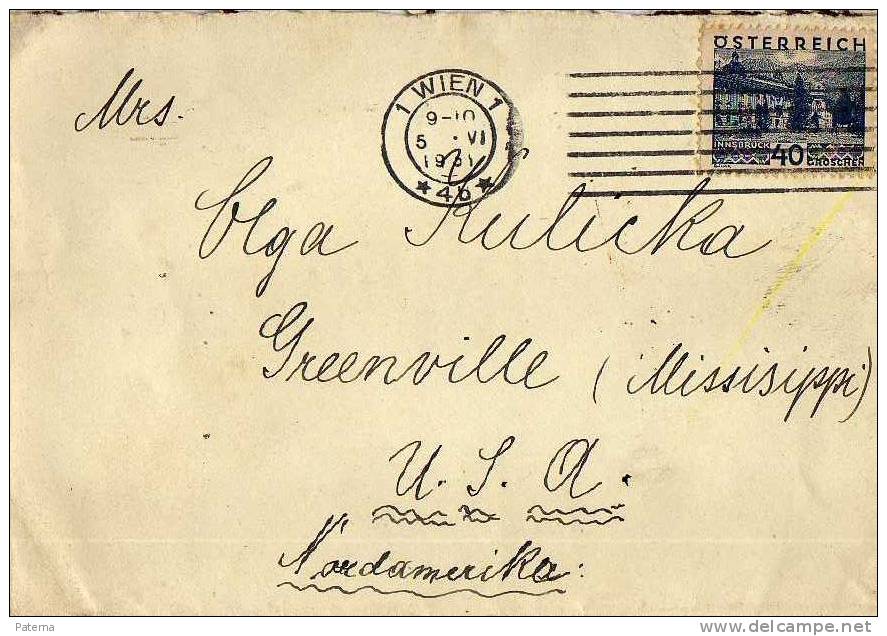 ÖSTERREICH
INNSBRUCK 40 GROSCHEN
1 WIEN 1
9-10
5 . VI
1931
* 4b *
Mrs.
Olga Kulicka
Greenville (Missisippi)
U. S. A.
Nordamerika.
Paterna
delcampe.net